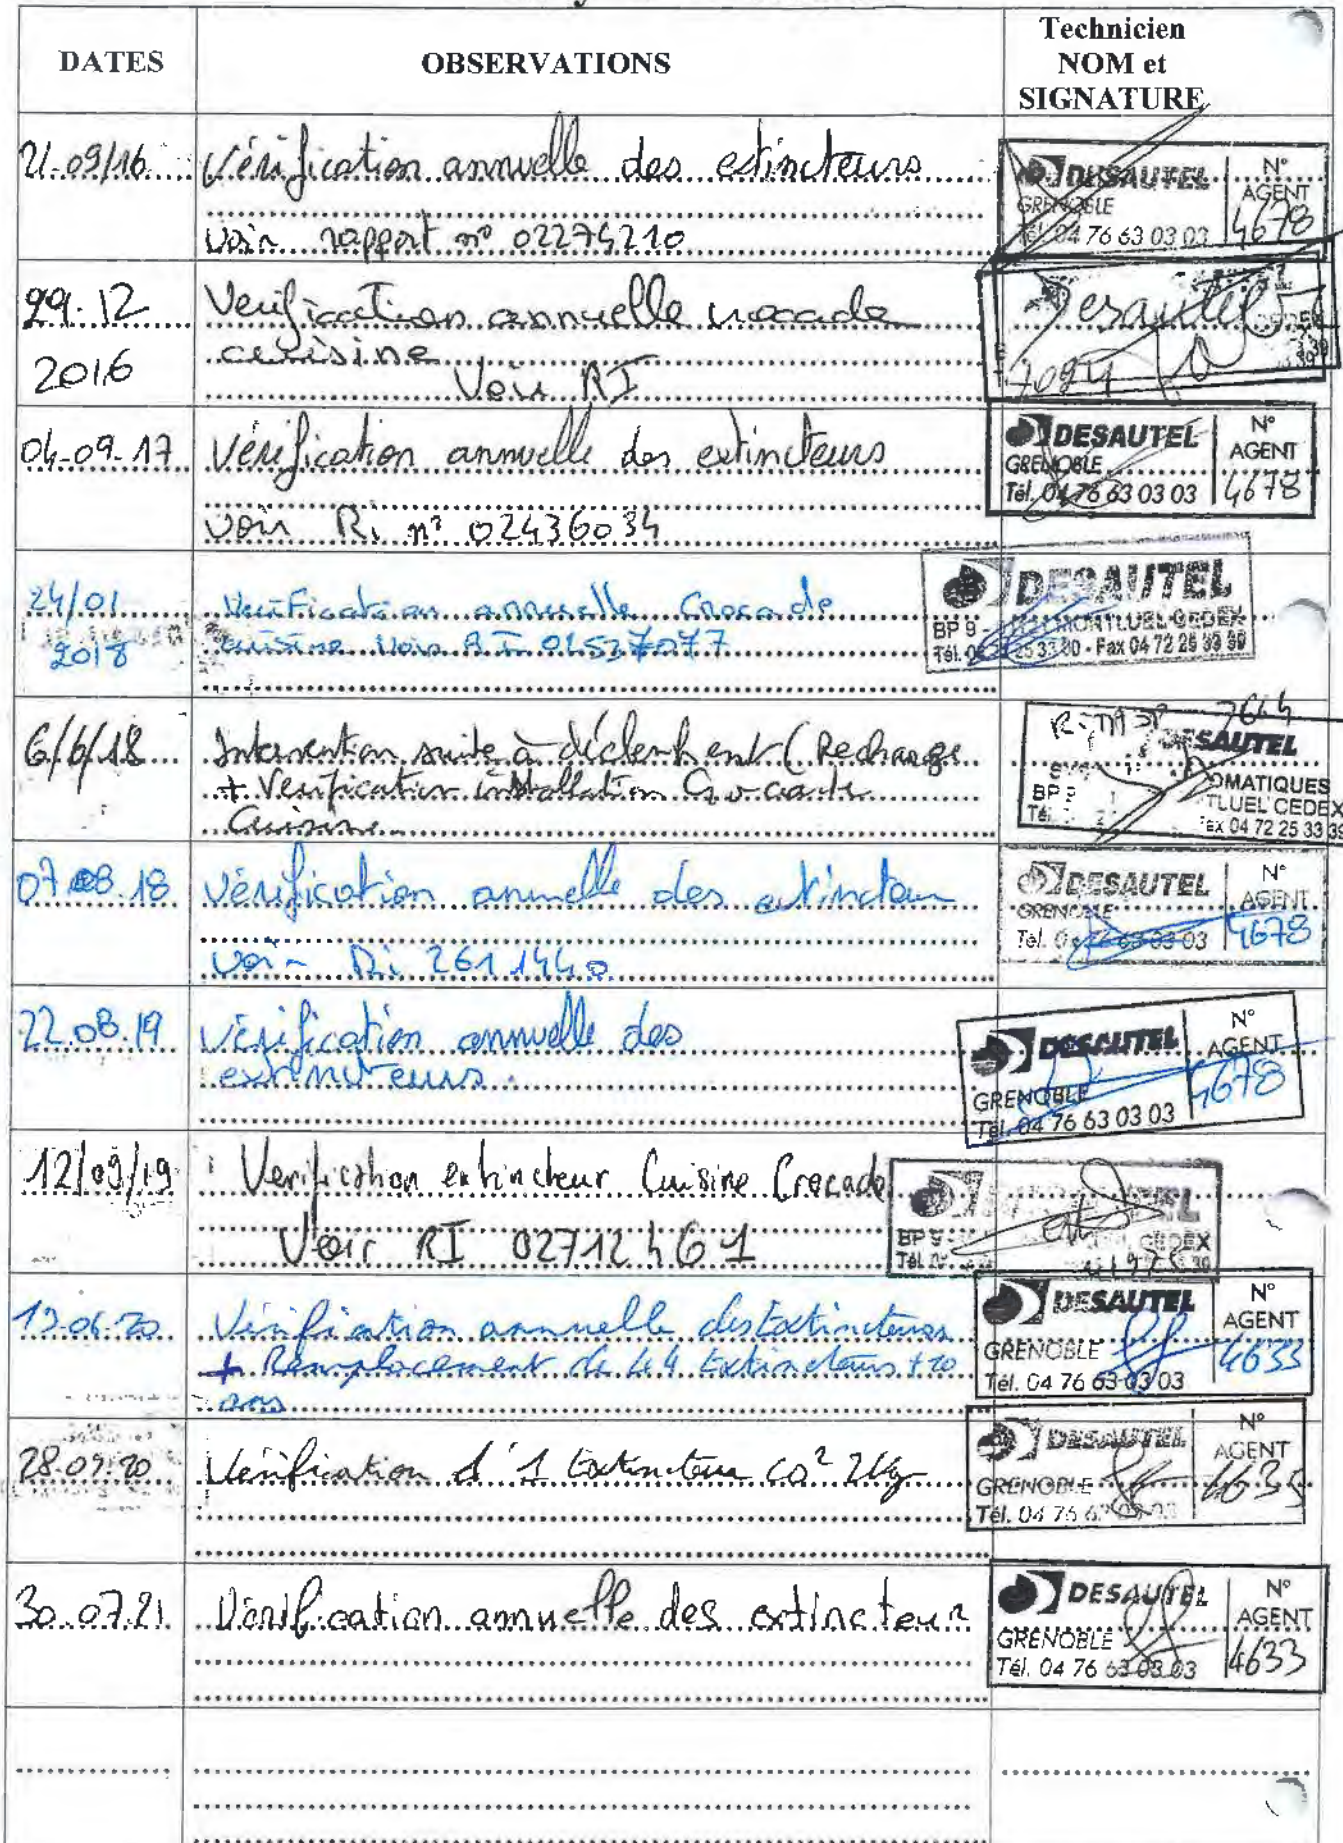 DATES
OBSERVATIONS
Technicien
NOM et
SIGNATURE
21.09/16
Vérification annuelle des extincteurs
voir rapport n° 02274210
DESAUTEL
GRENOBLE
Tél. 04 76 63 03 03
N°
AGENT
4678
29.12
2016
Verification annuelle crocade
cuisine
Voir RI
Desautel
04-09-17
Vérification annuelle des extincteurs
voir Ri n° 02436034
DESAUTEL
GRENOBLE
Tél. 04 76 63 03 03
N°
AGENT
4678
24/01
2018
Verification annuelle Crocade
cuisine Voir RI 02527077
DESAUTEL
BP 9 - MONTLUEL CEDEX
25 33 90 - Fax 04 72 25 33 39
6/6/18
Intervention suite à déclenchent (Recharge
+ Verification installation Crocade
Cuisine
DESAUTEL
OMATIQUES
TLUEL CEDEX
ex 04 72 25 33 39
07.08.18
Vérification annuelle des extincteur
voir Ri 2611440
DESAUTEL
GRENOBLE
Tél. 04 76 63 03 03
N°
AGENT
4678
22.08.19
Vérification annuelle des
extincteurs.
DESAUTEL
GRENOBLE
Tél. 04 76 63 03 03
N°
AGENT
4678
12/09/19
Verification extincteur Cuisine Crocade
Voir RI 02712461
BP 9
CEDEX
Vérification annuelle des Extincteurs
+ Remplacement de 44 Extincteurs +10
ans
DESAUTEL
GRENOBLE
Tél. 04 76 63 03 03
N°
AGENT
4633
28.07.20
Vérification d'1 Extincteur CO² 2Kg
DESAUTEL
GRENOBLE
Tél. 04 76 63 03 03
N°
AGENT
4633
30.07.21
Vérification annuelle des extincteur
DESAUTEL
GRENOBLE
Tél. 04 76 63 03 03
N°
AGENT
4633